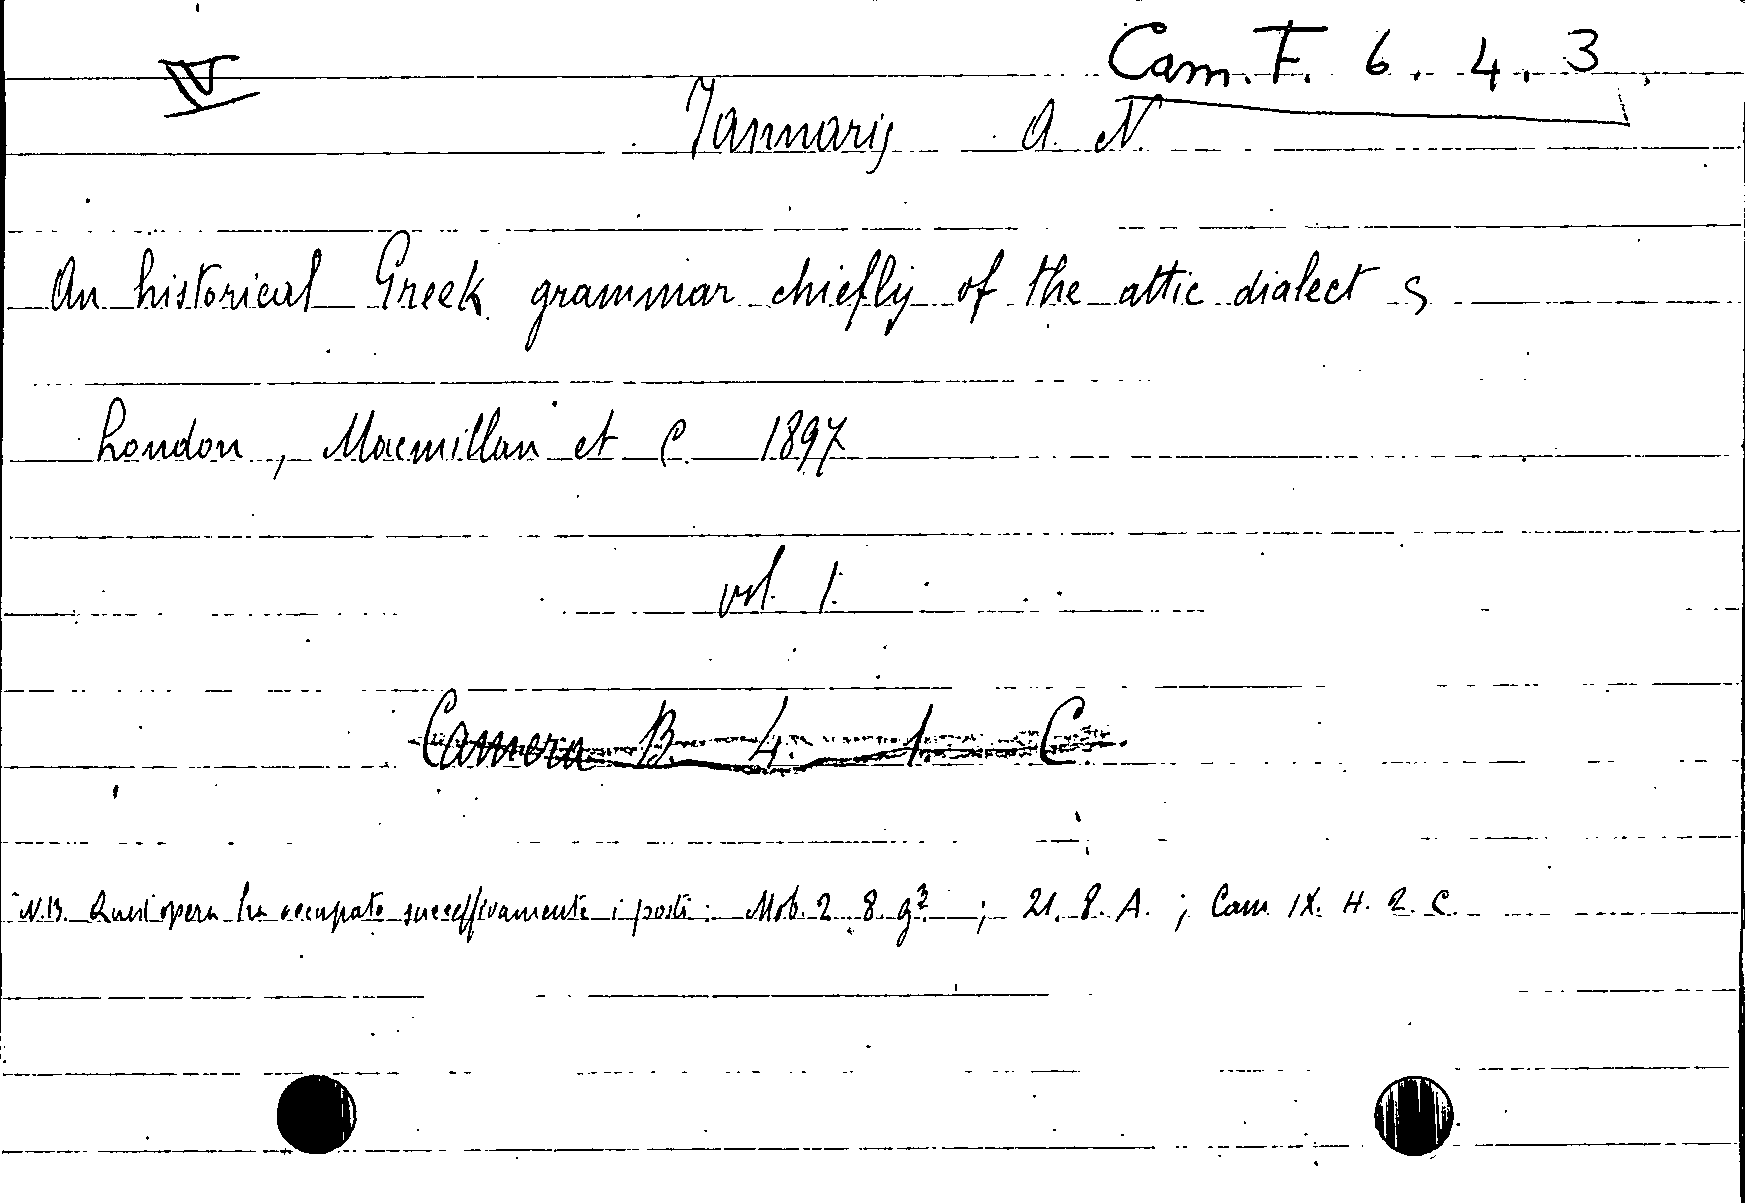 IV
Cam. F. 6. 4. 3.
Jannaris A. N.
An historical Greek grammar chiefly of the attic dialect s
London, Macmillan et C. 1897
vol. 1.
Camera B. 4. 1. C.
N.B. Quest'opera ha occupato successivamente i posti: Mob. 2. 8. g²; 21. 8. A.; Cam. IX. H. 2. C.